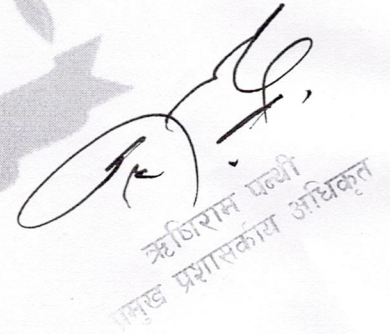 ऋषिराम पन्थी
प्रमुख प्रशासकीय अधिकृत